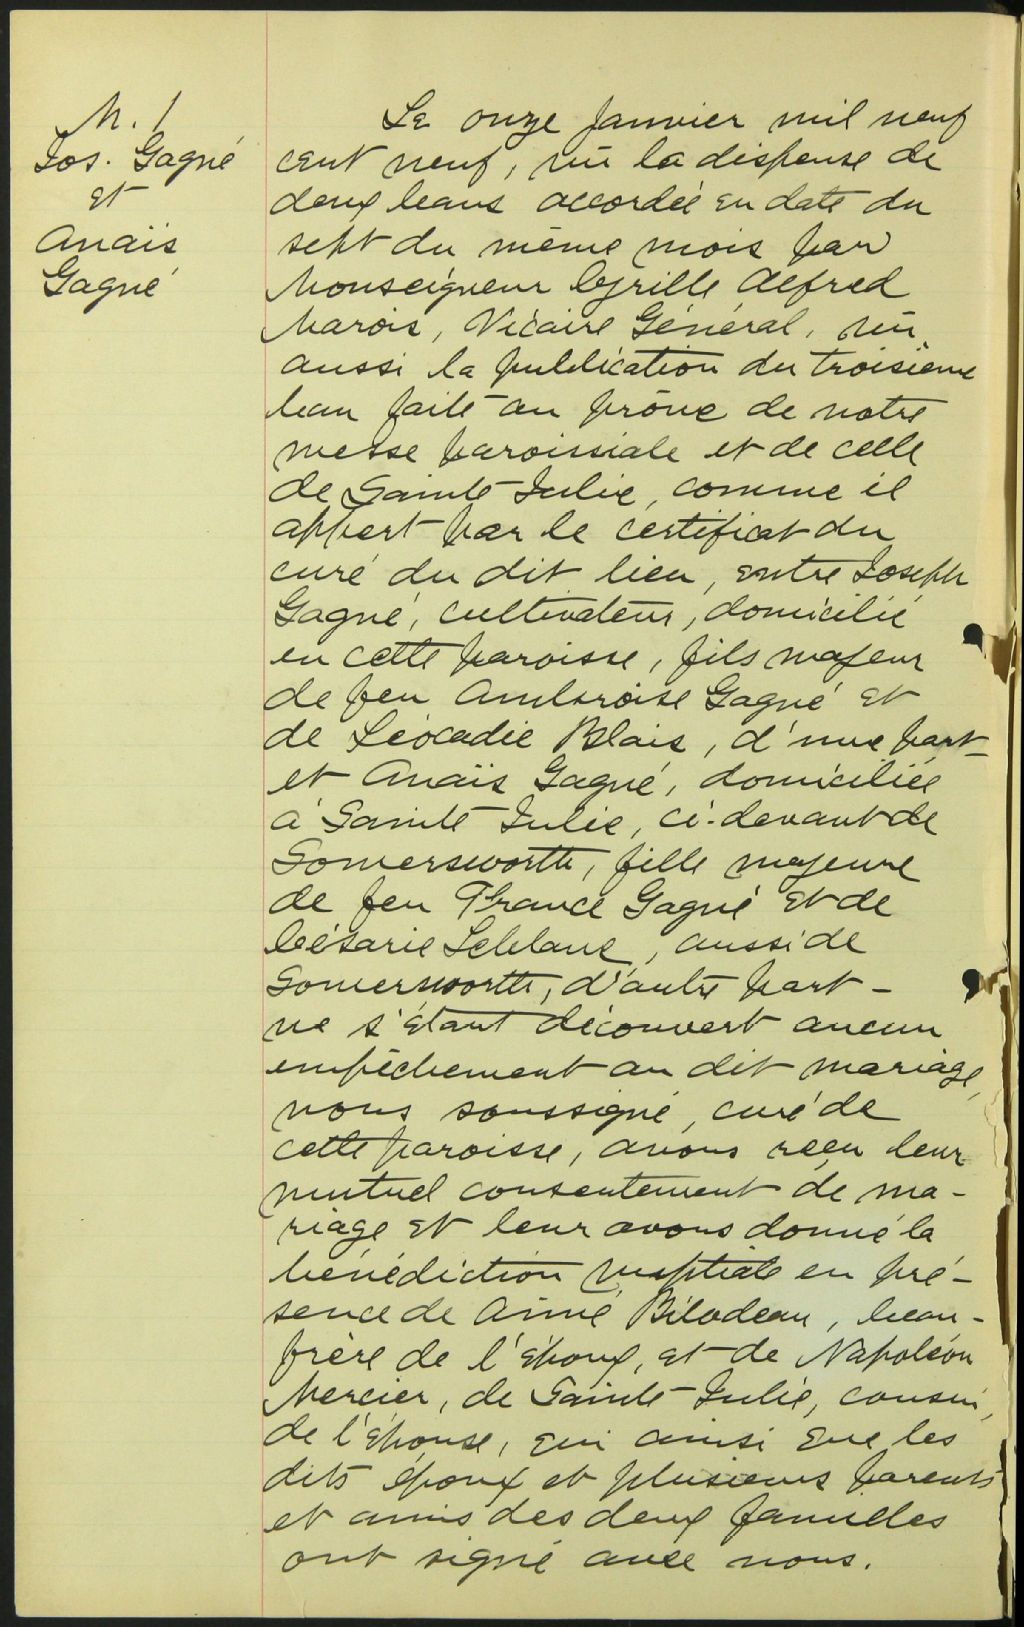 M. 1
Jos. Gagné
et
Anaïs
Gagné
Le onze janvier mil neuf
cent neuf, vu la dispense de
deux bans accordée en date du
sept du même mois par
Monseigneur Cyrille Alfred
Marois, Vicaire Général, vu
aussi la publication du troisième
ban faite au prône de notre
messe paroissiale et de celle
de Sainte-Julie, comme il
appert par le certificat du
curé du dit lieu, entre Joseph
Gagné, cultivateur, domicilié
en cette paroisse, fils majeur
de feu Ambroise Gagné et
de Léocadie Blais, d'une part
et Anaïs Gagné, domiciliée
à Sainte Julie, ci-devant de
Somersworth, fille majeure
de feu France Gagné et de
Césarie Leblanc, aussi de
Somersworth, d'autre part -
ne s'étant découvert aucun
empêchement au dit mariage,
nous soussigné, curé de
cette paroisse, avons reçu leur
mutuel consentement de ma-
riage et leur avons donné la
bénédiction nuptiale en pré-
sence de Aimé Bilodeau, beau-
frère de l'époux, et de Napoléon
Mercier, de Sainte-Julie, cousin
de l'épouse, qui ainsi que les
dits époux et plusieurs parents
et amis des deux familles
ont signé avec nous.